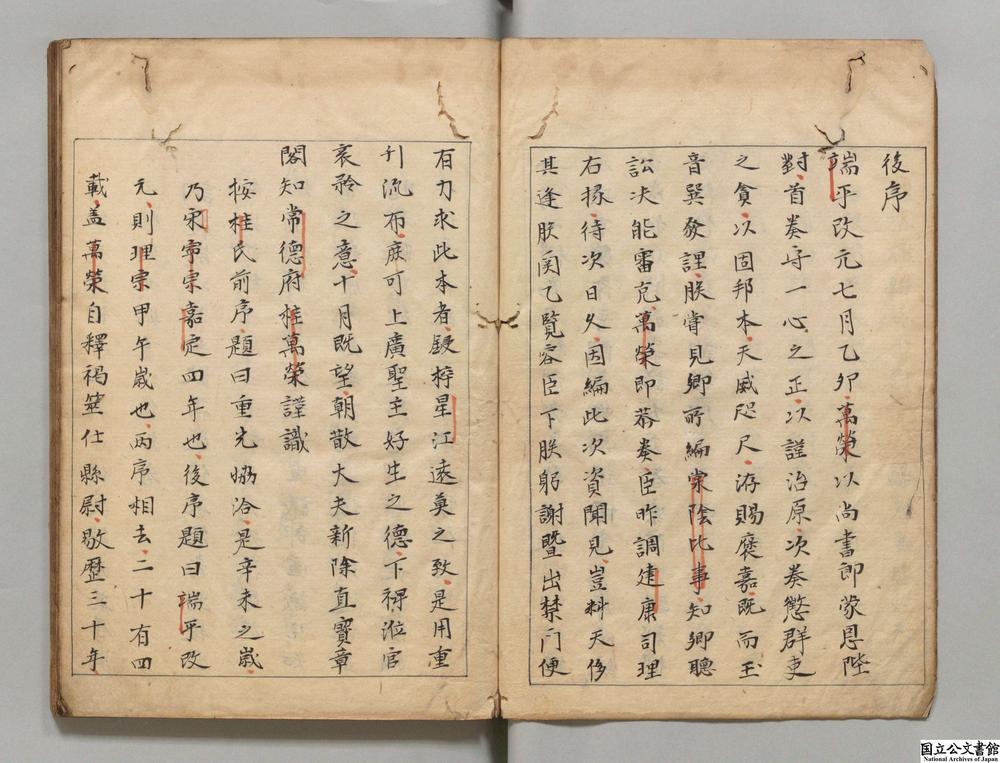 後序
端平改元七月乙卯萬榮以尚書郎蒙恩陛
對首奏守一心之正以謹治原次奏懲群吏
之貪以固邦本天威咫尺洊賜褒嘉既而玉
音巽發謹朕嘗見卿所編棠陰比事知卿聽
訟決能審克萬榮即恭奏臣昨調建康司理
右掾待次日久因編此次資聞見豈料天侈
其逢朕關乙覽容臣下朕躬謝暨出禁門便
有力求此本者鋟梓星江遠莫之致是用重
刊流布庶可上廣聖主好生之德下裨涖官
哀矜之意十月既望朝散大夫新除直寶章
閣知常德府桂萬榮謹識
按桂氏前序題曰重光協洽是辛未之歲
乃宋寧宗嘉定四年也後序題曰端平改
元則理宗甲午歲也兩序相去二十有四
載蓋萬榮自釋褐筮仕縣尉敭歷三十年
国立公文書館
National Archives of Japan